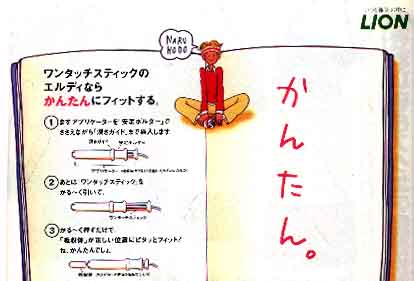 LION
NARU
HODO
ワンタッチスティックの
エルディなら
かんたんにフィットする。
かんたん。
① まずアプリケーターを「安定ホルダー」で
ささえながら「深さガイド」まで挿入します
深さガイド 安定ホルダー
② あとは「ワンタッチスティック」を
かる〜く引いて、
ワンタッチスティック
③ かる〜く押すだけで、
「吸収体」が正しい位置にピタッとフィット!
ね、かんたんでしょ。
吸収体